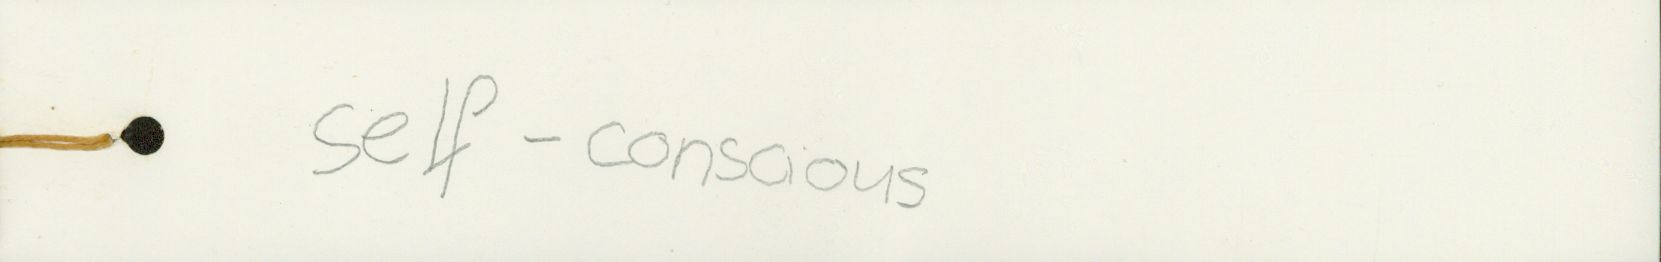 self - conscious